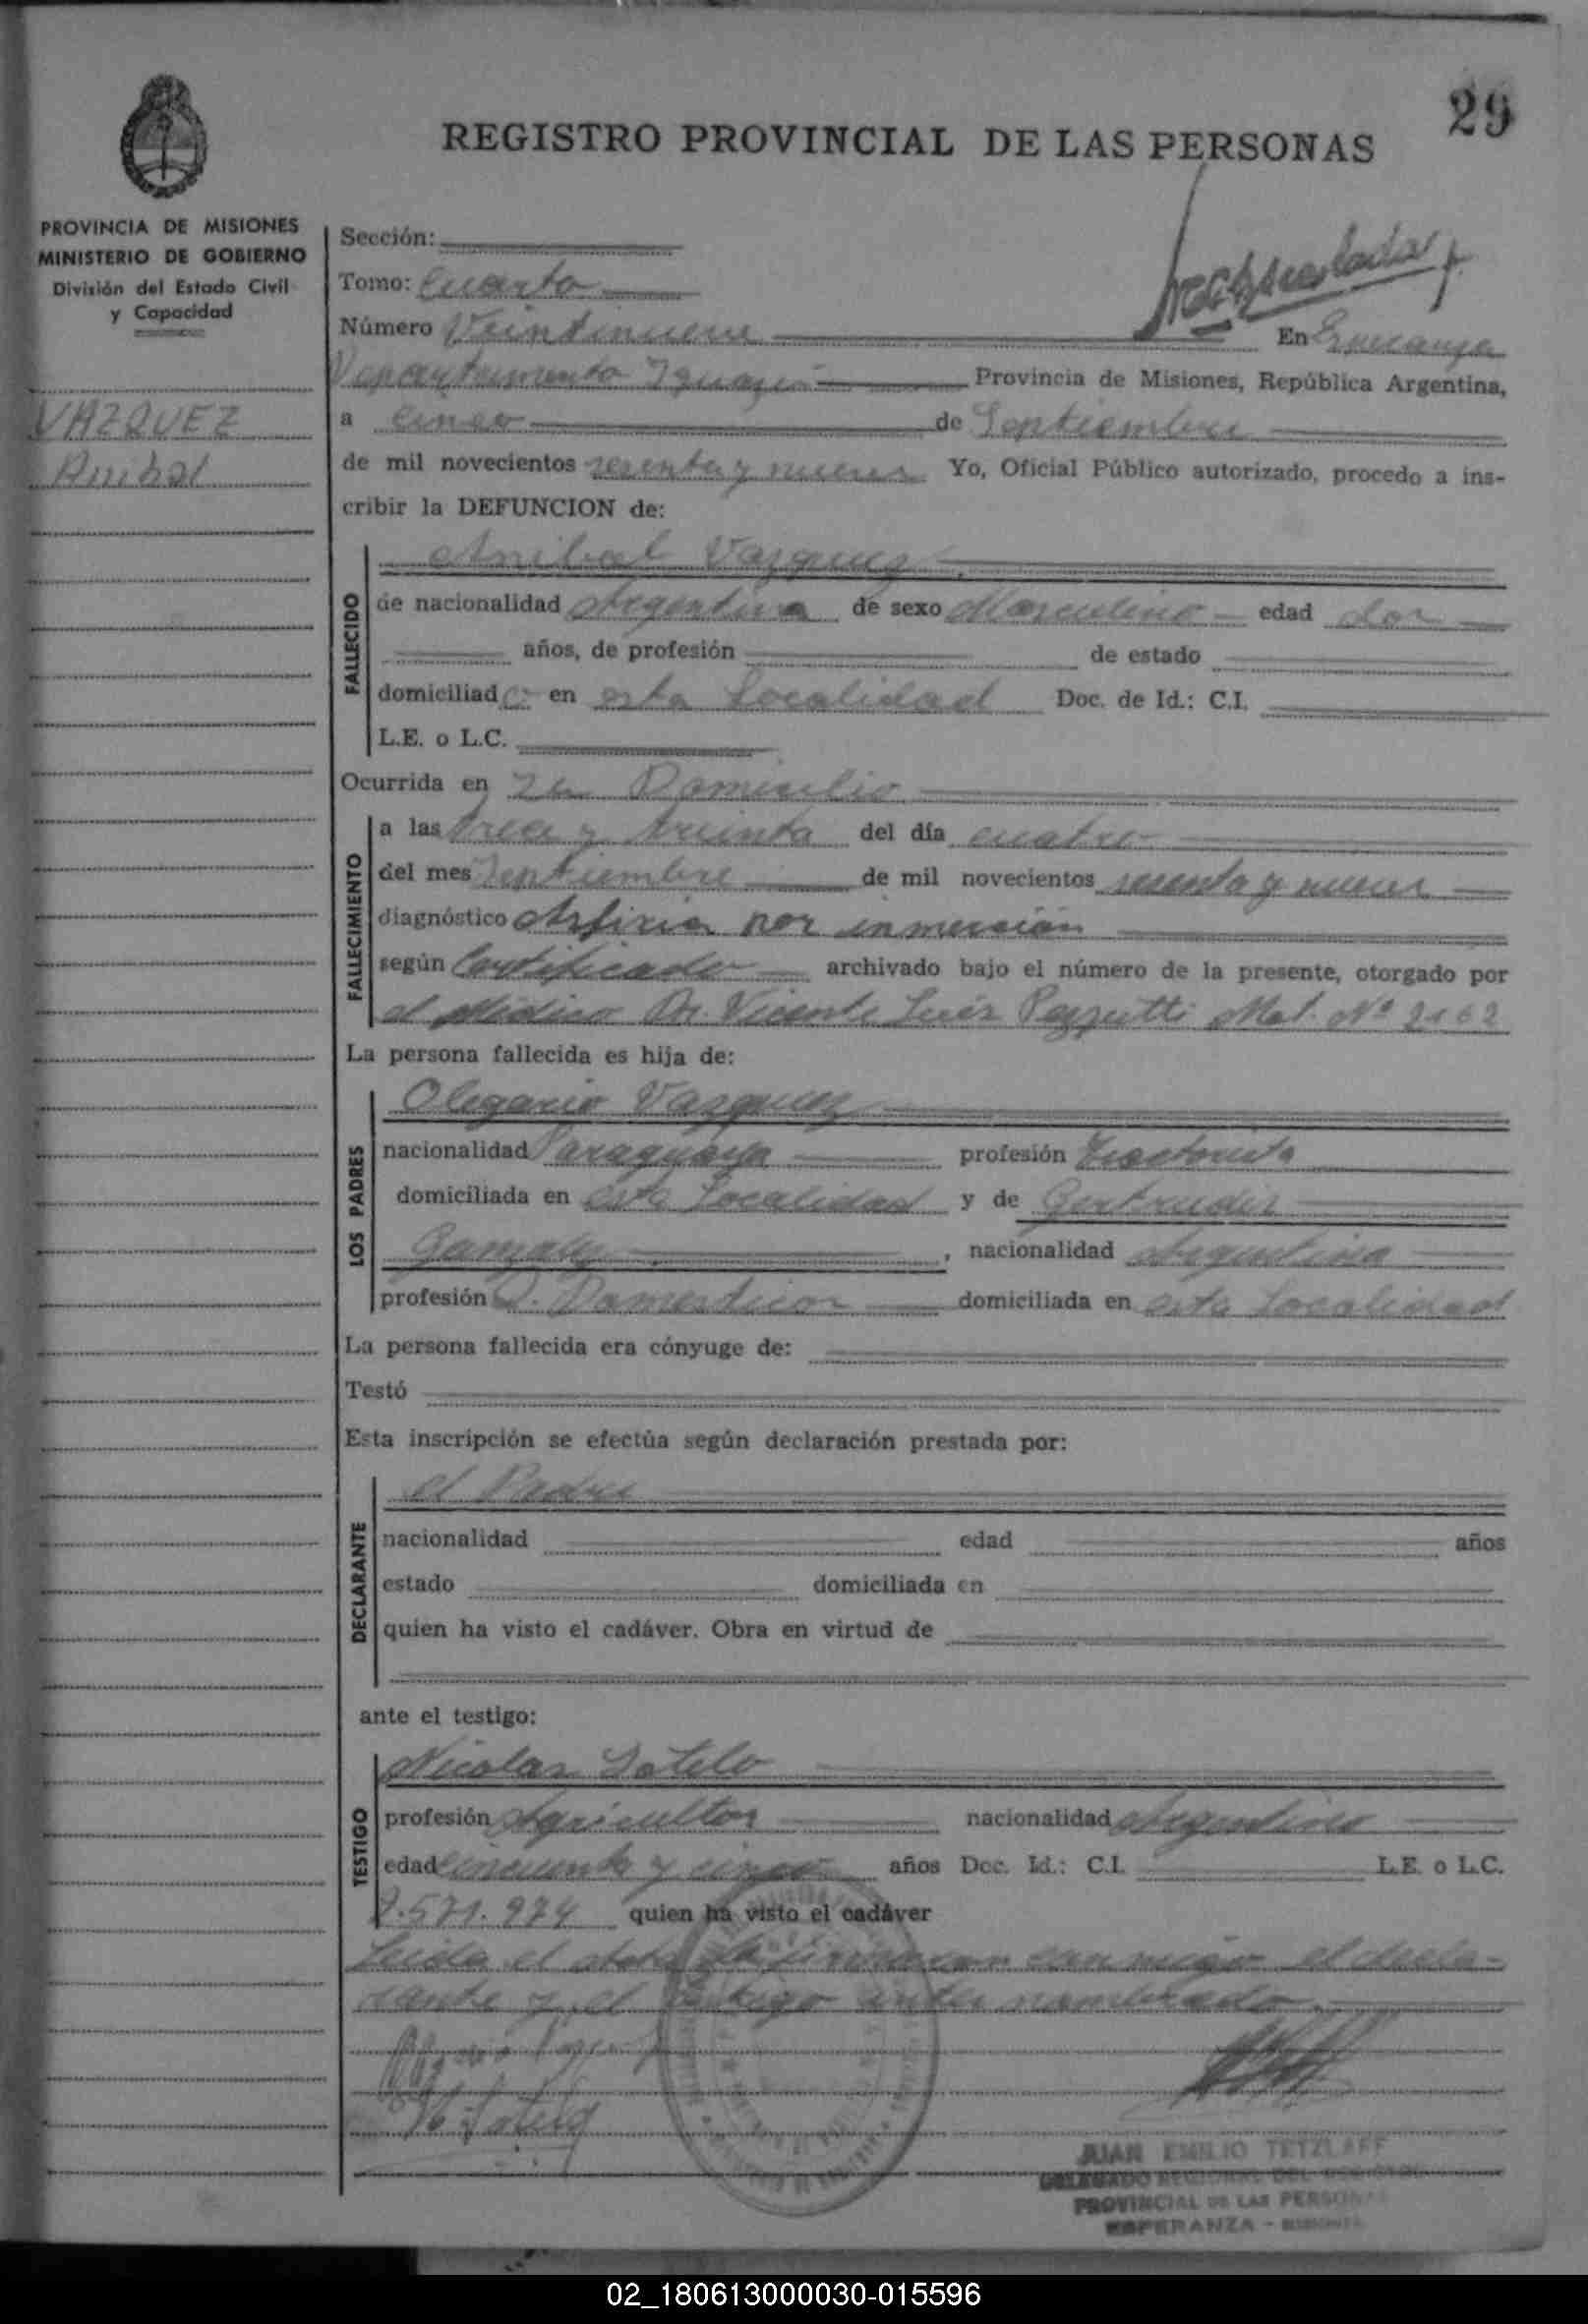 29
REGISTRO PROVINCIAL DE LAS PERSONAS
PROVINCIA DE MISIONES
MINISTERIO DE GOBIERNO
División del Estado Civil
y Capacidad
VAZQUEZ
Anibal
Sección:
Tomo: Cuarto
Número Veintinueve En Esperanza
Departamento Iguazú Provincia de Misiones, República Argentina,
a cinco de Septiembre
de mil novecientos sesenta y nueve Yo, Oficial Público autorizado, procedo a ins-
cribir la DEFUNCION de:
FALLECIDO
Anibal Vazquez
de nacionalidad Argentina de sexo Masculino edad dos
años, de profesión de estado
domiciliado en esta Localidad Doc. de Id.: C.I.
L.E. o L.C.
Ocurrida en su Domicilio
FALLECIMIENTO
a las trece y treinta del día cuatro
del mes Septiembre de mil novecientos sesenta y nueve
diagnóstico Asfixia por inmersión
según Certificado archivado bajo el número de la presente, otorgado por
el Médico Dr. Vicente Luis Pezzutti Mat. Nº 2162
La persona fallecida es hija de:
LOS PADRES
Olegario Vazquez
nacionalidad Paraguaya profesión Tractorista
domiciliada en esta Localidad y de Gertrudis
Gonzalez, nacionalidad Argentina
profesión Q. Domesticos domiciliada en esta Localidad
La persona fallecida era cónyuge de:
Testó
Esta inscripción se efectúa según declaración prestada por:
DECLARANTE
el Padre
nacionalidad edad años
estado domiciliada en
quien ha visto el cadáver. Obra en virtud de
ante el testigo:
TESTIGO
Nicolas Sotelo
profesión Agricultor nacionalidad Argentino
edad cincuenta y cinco años Doc. Id.: C.I. L.E. o L.C.
7.571.974 quien ha visto el cadáver
Leida el Acta la firmaron conmigo el decla-
rante y el testigo antes nombrado.
N. Sotelo
JUAN EMILIO TETZLAFF
DELEGADO REGIONAL DEL REGISTRO
PROVINCIAL DE LAS PERSONAS
ESPERANZA - MISIONES
02_180613000030-015596